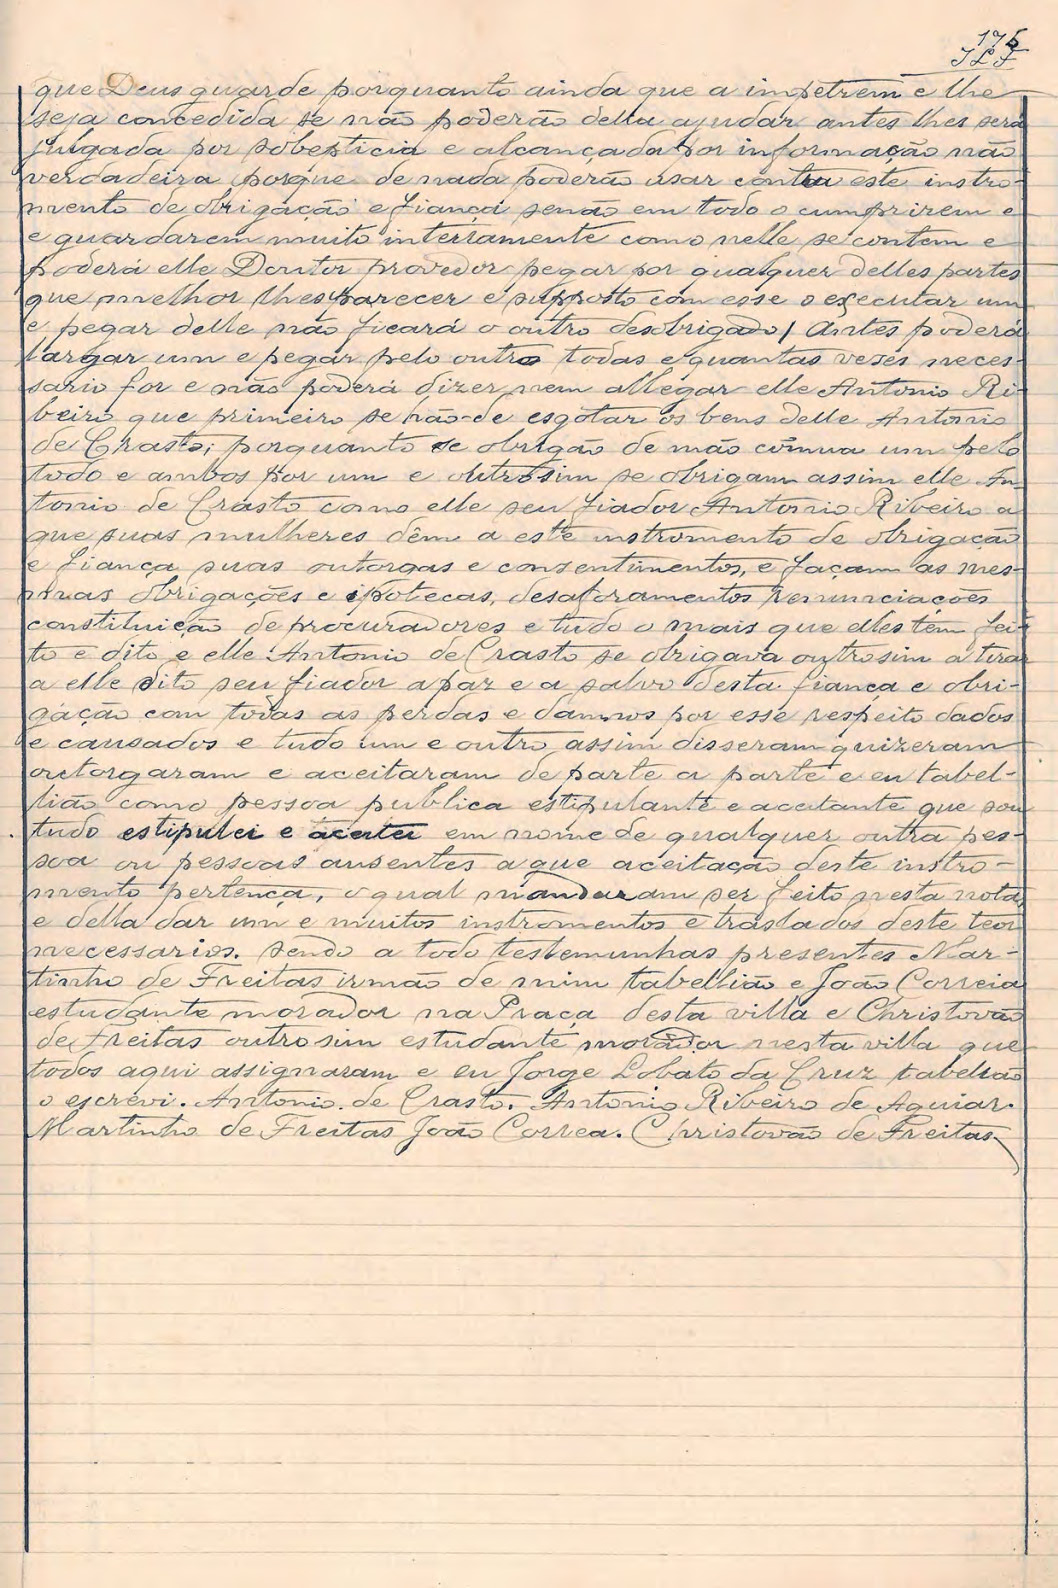 175
que Deus guarde porquanto ainda que a impetrem e lhe
seja concedida se não poderão della ajudar antes lhes será
julgada por sobepticia e alcançada por informação não
verdadeira porque de nada poderão usar contra este instro-
mento de obrigação e fiança senão em todo o cumprirem e
e guardarem muito interramente como nelle se contem e
poderá elle Doutor provedor pegar por qualquer delles partes
que melhor lhes parecer e supposto com esse o executar um
e pegar delle não ficará o outro desobrigado / Antes poderá
largar um e pegar pelo outro todas e quantas veses neces-
sario for e não poderá dizer nem allegar elle Antonio Ri-
beiro que primeiro se hão-de esgotar os bens delle Antonio
de Crasto; porquanto se obrigão de mão cõmua um pelo
todo e ambos por um e outrosim se obrigam assim elle An-
tonio de Crasto como elle seu fiador Antonio Ribeiro a
que suas mulheres dêm a este instromento de obrigação
e fiança suas outorgas e consentimentos, e façam as mes-
mas obrigações e ipotecas, desaforamentos renunciações
constituição de procuradores e tudo o mais que elles têm fei-
to e dito e elle Antonio de Crasto se obrigava outrosim a tirar
a elle dito seu fiador a paz e a salvo desta fiança e obri-
gação com todas as perdas e damnos por esse respeito dados
e causados e tudo um e outro assim disseram quizeram
outorgaram e aceitaram de parte a parte e eu tabel-
lião como pessoa publica estipulante e aceitante que sou
tudo estipulei e aceitei em nome de qualquer outra pes-
soa ou pessoas ausentes a que aceitação deste instro-
mento pertença, o qual mandaram ser feito nesta nota
e della dar um e muitos instromentos e traslados deste teor
necessarios. Sendo a todo testemunhas presentes Mar-
tinho de Freitas irmão de mim tabellião e João Correia
estudante morador na Praça desta villa e Christovão
de Freitas outrosim estudante morador nesta villa que
todos aqui assignaram e eu Jorge Lobato da Cruz tabelião
o escrevi. Antonio de Crasto. Antonio Ribeiro de Aguiar.
Martinho de Freitas João Correa. Christovão de Freitas